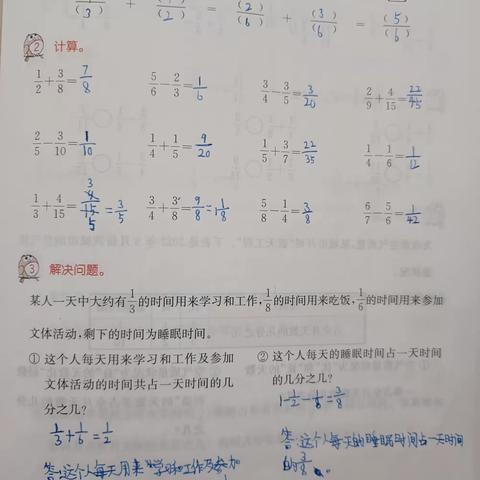 (3) + (2) = (2)/(6) + (3)/(6) = (5)/(6)
② 计算。
1/2+3/8=7/8 5/6-2/3=1/6 3/4-3/5=3/20 2/9+4/15=22/45
2/5-3/10=1/10 1/4+1/5=9/20 1/5+3/7=22/35 1/4-1/6=1/12
1/3+4/15= =3/5 3/4+3/8=9/8=1 1/8 5/8-1/4=3/8 6/7-5/6=1/42
③ 解决问题。
某人一天中大约有1/3的时间用来学习和工作,1/8的时间用来吃饭,1/6的时间用来参加
文体活动,剩下的时间为睡眠时间。
① 这个人每天用来学习和工作及参加
文体活动的时间共占一天时间的几
分之几?
1/3+1/6=1/2
答:这个人每天用来学习和工作及参加
② 这个人每天的睡眠时间占一天时间
的几分之几?
1-1/2-1/8=3/8
答:这个人每天的睡眠时间占一天时间
的3/8。